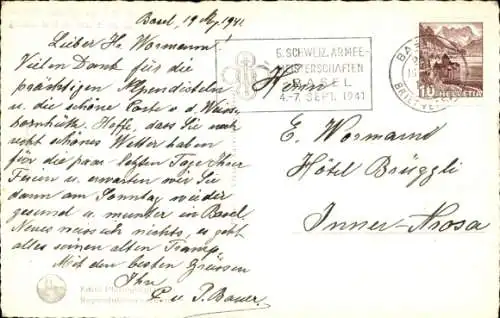 Basel, 19 Aug 1941.
Lieber H. Wormann!
Vielen Dank für die
prächtigen Alpendisteln
u. die schöne Karte v. d. Weiss-
hornhütte. Hoffe, dass Sie noch
recht schönes Wetter haben
für die paar letzten Tage Ihrer
Ferien u. erwarten wir Sie
dann am Sonntag wieder
gesund u. munter in Basel.
Neues weiss ich nichts, es geht
alles seinen alten Tramp.
Mit den besten Grüssen
Ihr
C. u. P. Bauer.
5. SCHWEIZ. ARMEE-
MEISTERSCHAFTEN
BASEL
4.-7. SEPT. 1941
BA
BRIEFVE
10 HELVETIA
Herrn
E. Wormann
Hôtel Brüggli
Inner-Arosa